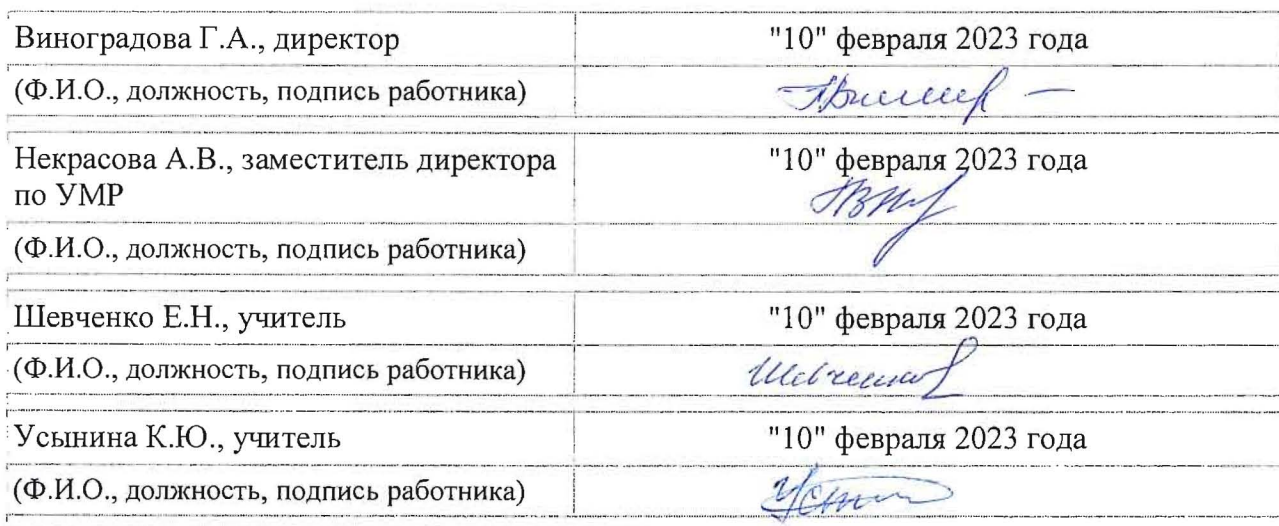 Виноградова Г.А., директор "10" февраля 2023 года
(Ф.И.О., должность, подпись работника)
Некрасова А.В., заместитель директора "10" февраля 2023 года
по УМР
(Ф.И.О., должность, подпись работника)
Шевченко Е.Н., учитель "10" февраля 2023 года
(Ф.И.О., должность, подпись работника) Шевченко
Усынина К.Ю., учитель "10" февраля 2023 года
(Ф.И.О., должность, подпись работника)